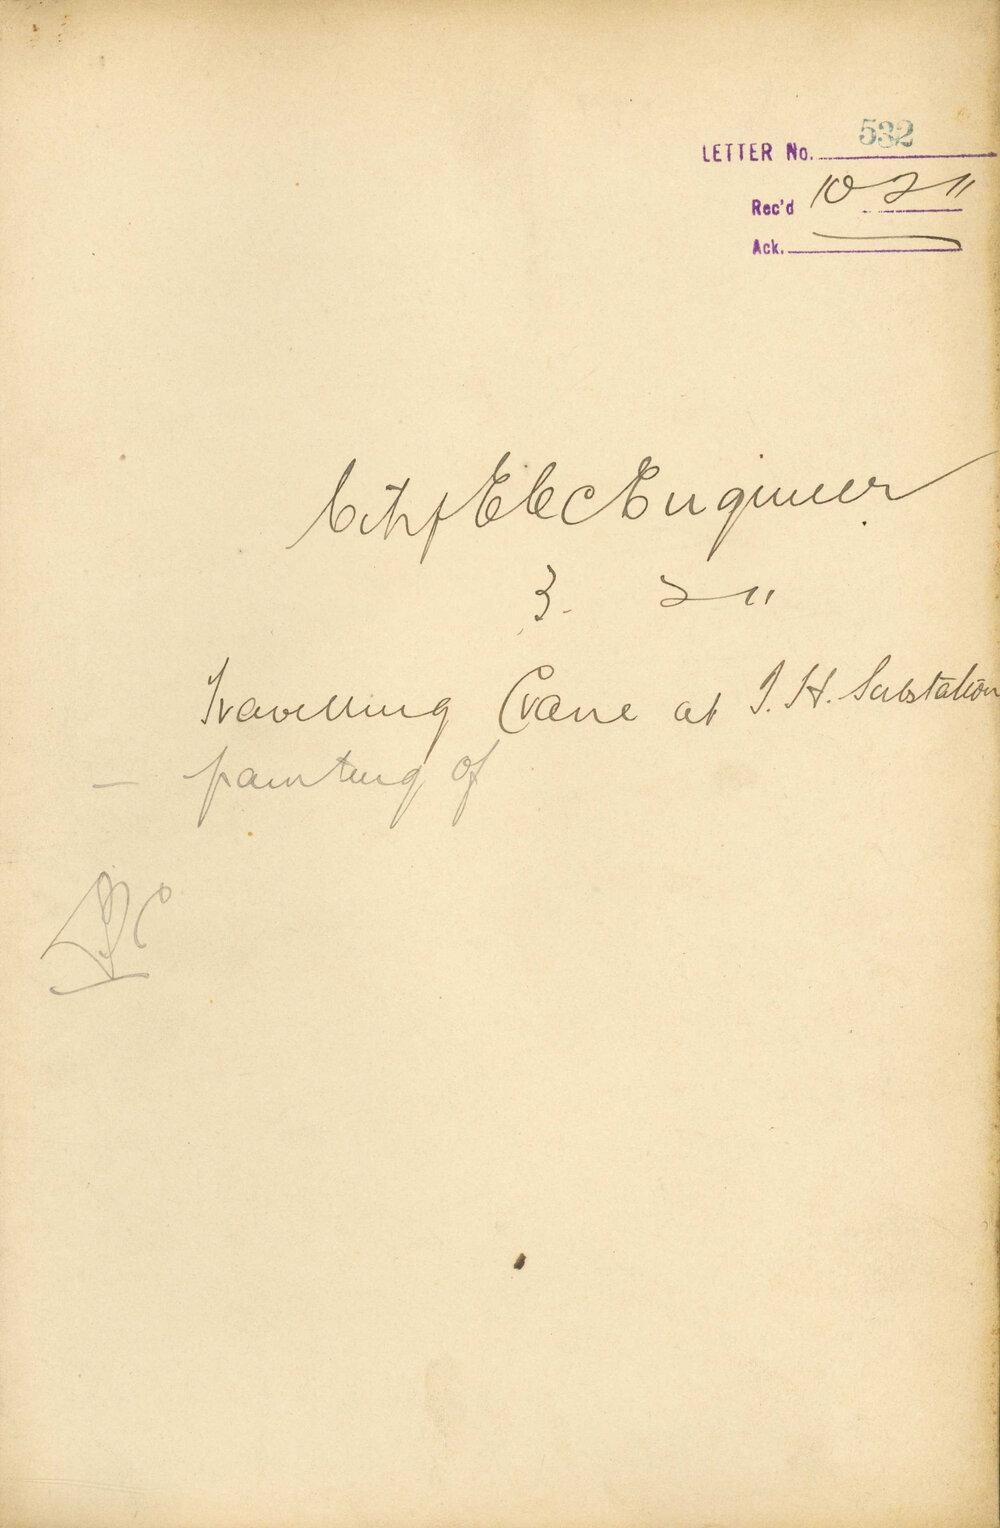 LETTER No. 532
Rec'd 10 2 11
Ack.
City Elec Engineer
3. 2 11
Travelling Crane at T. H. Substation
— painting of